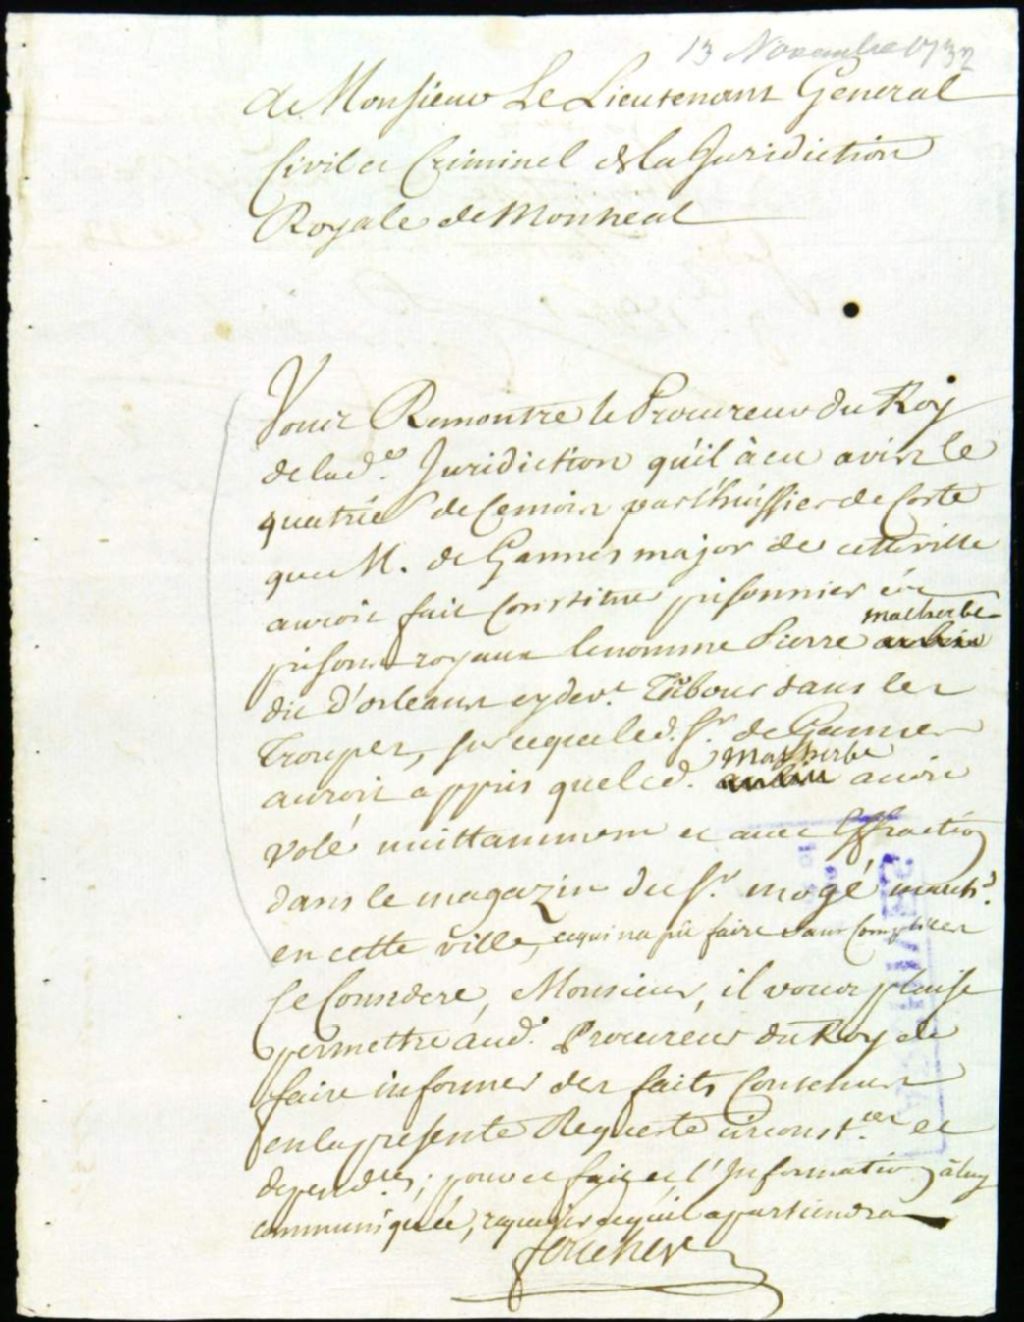 13 Novembre 1732
A Monsieur Le Lieutenant General
Civil et Criminel de la Juridiction
Royale de Montreal
Vous Remontre le Procureur du Roy
de lad.e Juridiction qu'il à eu avis le
quatrie de ce mois par l'huissier de Coste
que M. de Gannes major de cette ville
auroit fait constitue prisonnier és
malherbe
prisons royaux le nomme Pierre
dit d'orleans cy dev.t Tābour dans les
Troupes, sur ce que led. Sr. de Gannes
Malherbe
auroit appris que led. avoit
volé nuittamment et avec Effractiō
dans le magazin du Sr. mogé march.d
en cette ville, ce qui n'a pû faire sans complices
Ce Consideré, Monsieur, il vous plaise
permettre aud. Procureur du Roy de
faire informer des faits contenus
en la presente Requeste circonst.ces et
depend.ces; pour ce fait et l'Informatiō à luy
communiquée, requerir ce qu'il apartiendra
foucher
ARCHIVES